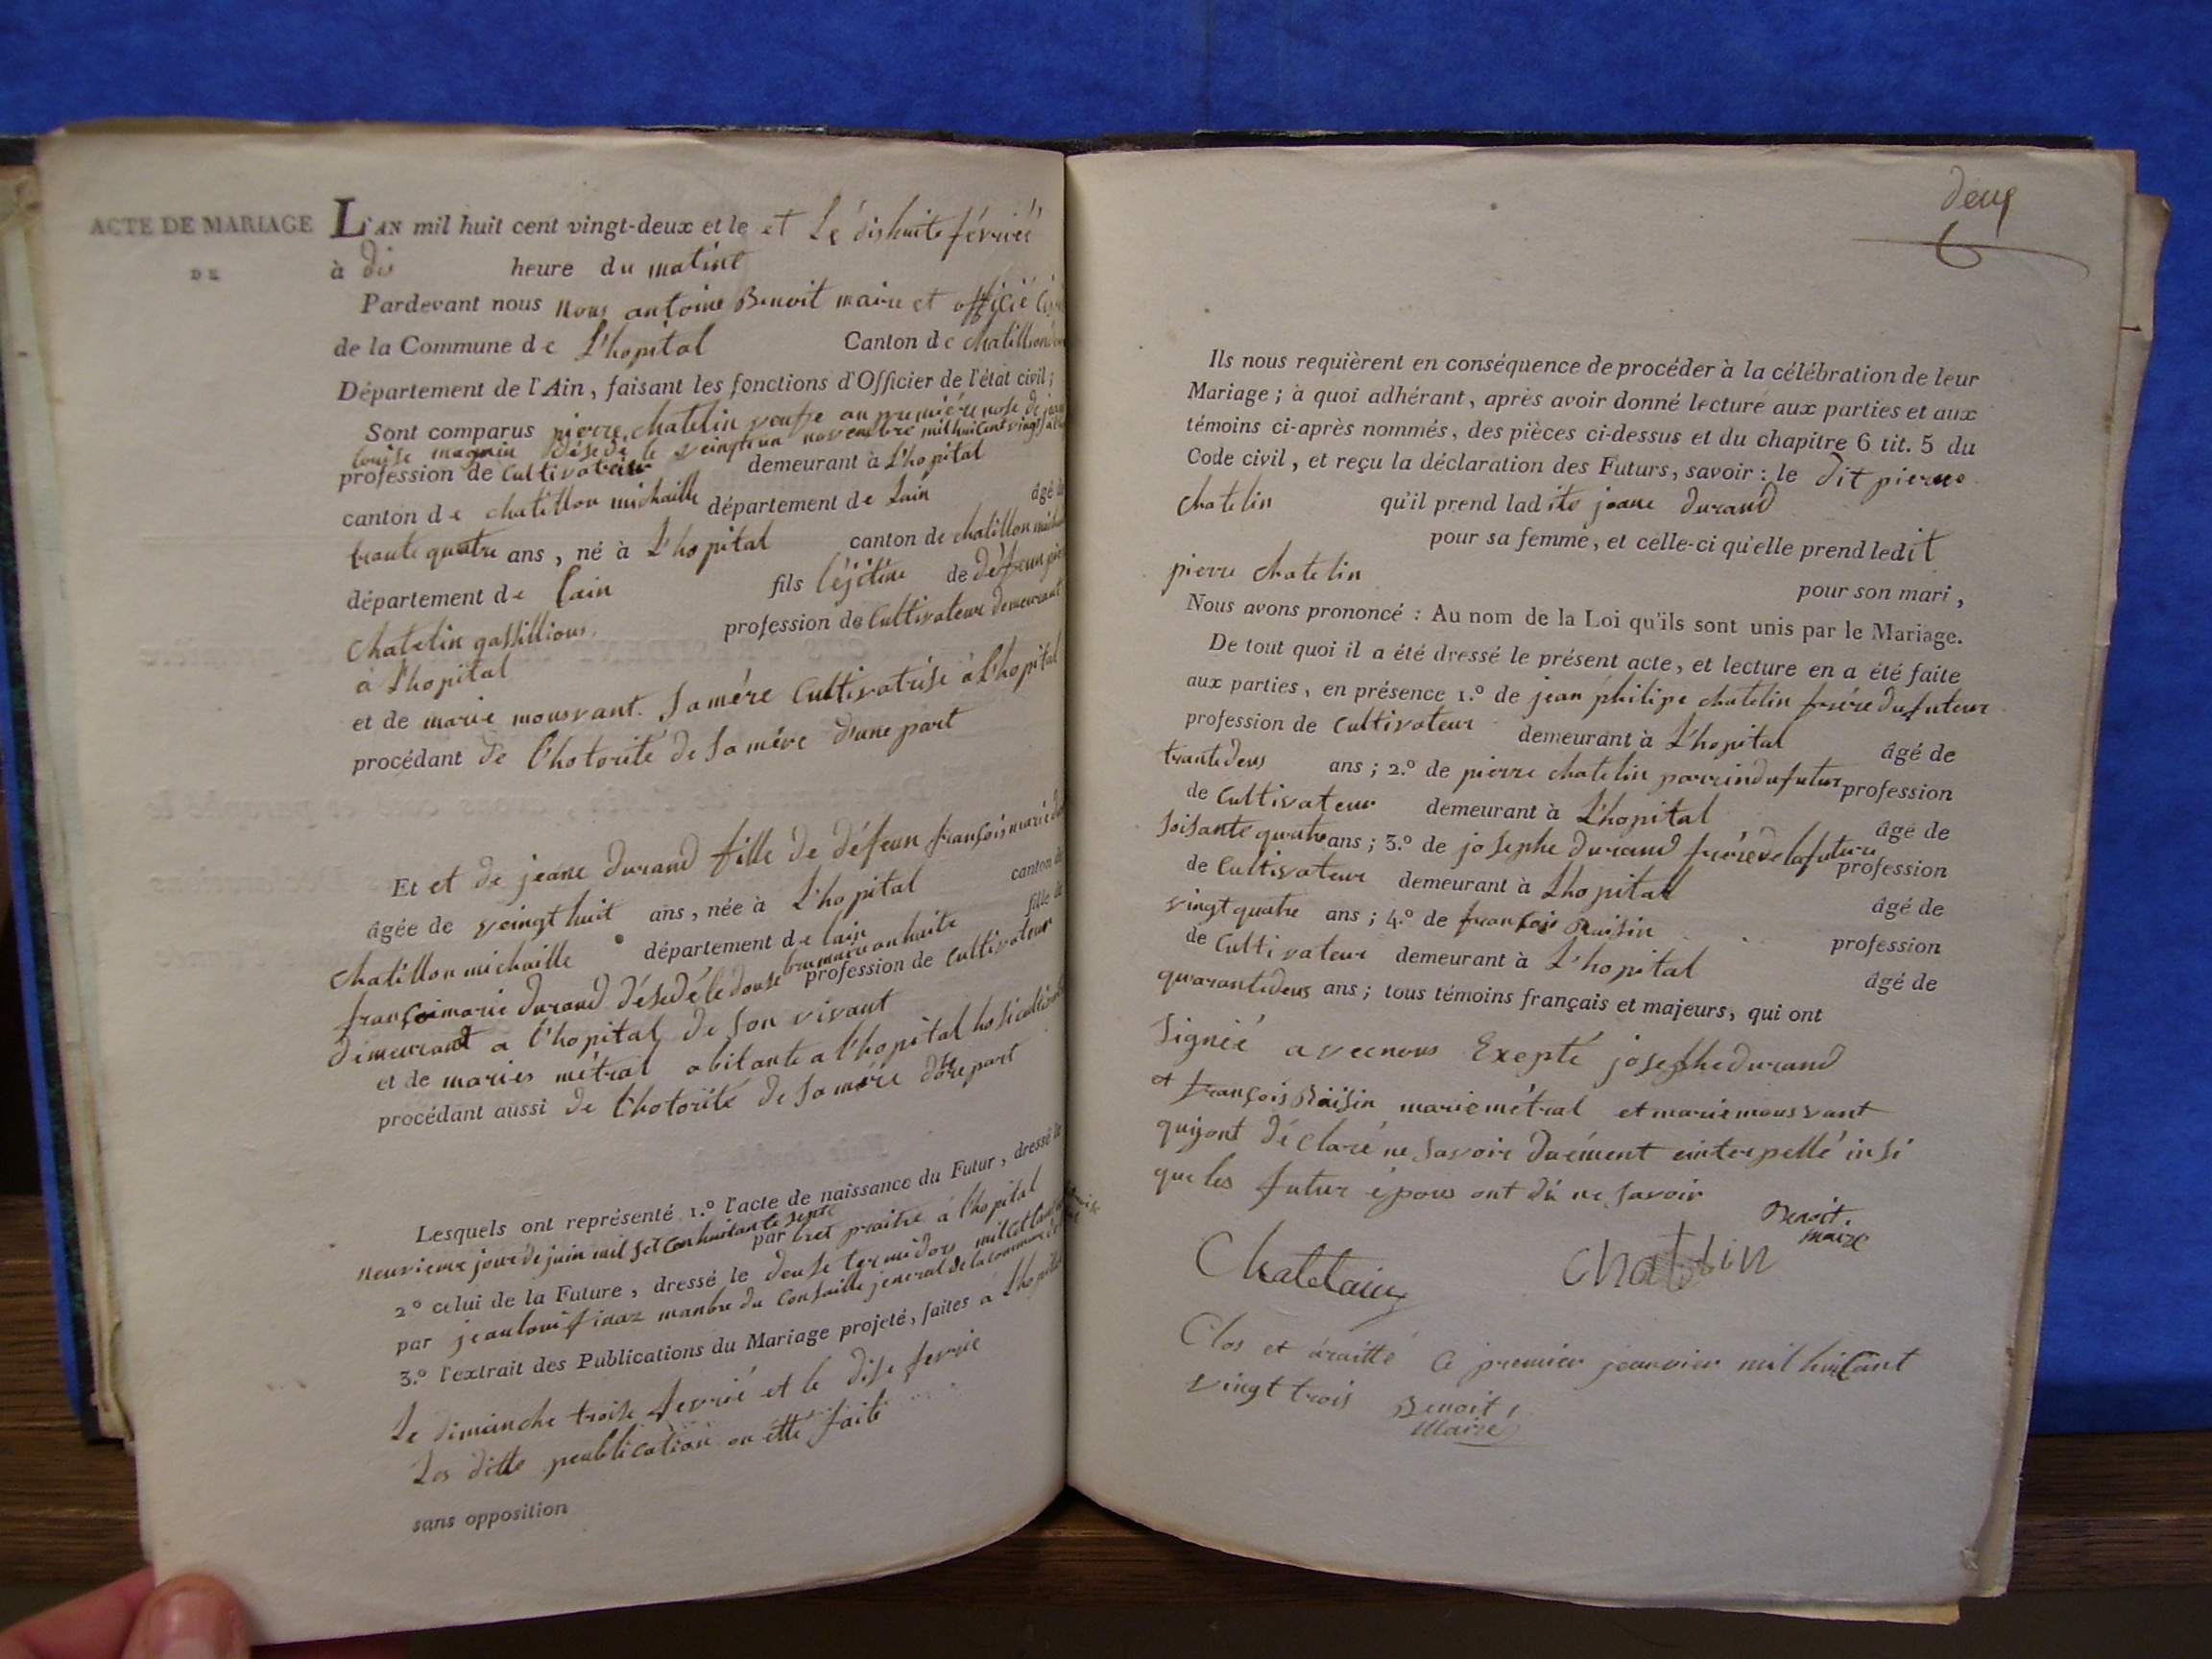 ACTE DE MARIAGE
DE
L'AN mil huit cent vingt-deux et le et Le dishuite févrié
à dis heure du matint
Pardevant nous nous antoine Benoit maire et officié
de la Commune de L'hopital Canton de chatillion
Département de l'Ain, faisant les fonctions d'Officier de l'état civil;
Sont comparus pierre chatelin veuffe au premiére nose de
louise magnin désédé le veingt un novembre mil huit cent vingt
profession de Cultivateur demeurant à L'hopital
canton de chatillon michaille département de Lain âgé de
trante quatre ans, né à L'hopital canton de chatillon
département de Lain fils léjitime de défeun
chatelin gassillion profession de Cultivateur demeurant
a L'hopital
et de marie mourvant. Sa mére Cultivatrise a L'hopital
procédant de l'hotorité de sa mére d'une part
Et et de jeane durand fille de défeun françois marie
âgée de veingt huit ans, née à L'hopital canton de
chatillon michaille département de lain fille de
françoi marie durand désedé le douse brumaire an huite profession de Cultivateur
demeurant a l'hopital de son vivant
et de maries métral abitante a l'hopital
procédant aussi de l'hotorité de sa mére d'otre part
Lesquels ont représenté 1.º l'acte de naissance du Futur, dressé le
neuvieme jour de juin mil set cen huitante septe par bret praitre a l'hopital
2º celui de la Future, dressé le douse termidore
par jean loui finaz manbre du Consaille jeneral de la commune de
3.º l'extrait des Publications du Mariage projeté, faites a L'hopital
Le dimanche troise fevrié et le dise fevrie
Les ditte peublication on etté faite
sans opposition
deux
Ils nous requièrent en conséquence de procéder à la célébration de leur
Mariage; à quoi adhérant, après avoir donné lecture aux parties et aux
témoins ci-après nommés, des pièces ci-dessus et du chapitre 6 tit. 5 du
Code civil, et reçu la déclaration des Futurs, savoir: le dit pierre
chatelin qu'il prend ladite jeane durand
pour sa femme, et celle-ci qu'elle prend ledit
pierre chatelin pour son mari,
Nous avons prononcé: Au nom de la Loi qu'ils sont unis par le Mariage.
De tout quoi il a été dressé le présent acte, et lecture en a été faite
aux parties, en présence 1.º de jean philipe chatelin frére du futeur
profession de Cultivateur demeurant à L'hopital âgé de
trante deus ans; 2.º de pierre chatelin parrein du futur profession
de Cultivateur demeurant à L'hopital âgé de
soisante quatre ans; 3.º de josephe durand frére de la future profession
de Cultivateur demeurant à Lhopital âgé de
vingt quatre ans; 4.º de françois Raisin profession
de Cultivateur demeurant à L'hopital âgé de
quarante deus ans; tous témoins français et majeurs, qui ont
Signié avec nous Exepté josephe durand
et françois Raisin marie métral et marie mourvant
qui ont déclaré ne savoir duément einterpellé insi
que les futur épous ont di ne savoir
Benoit
maire
Chatelain Chatelin
Clos et áraitté Ce premier jeanvier mil huit cant
vingt trois Benoit
Maire